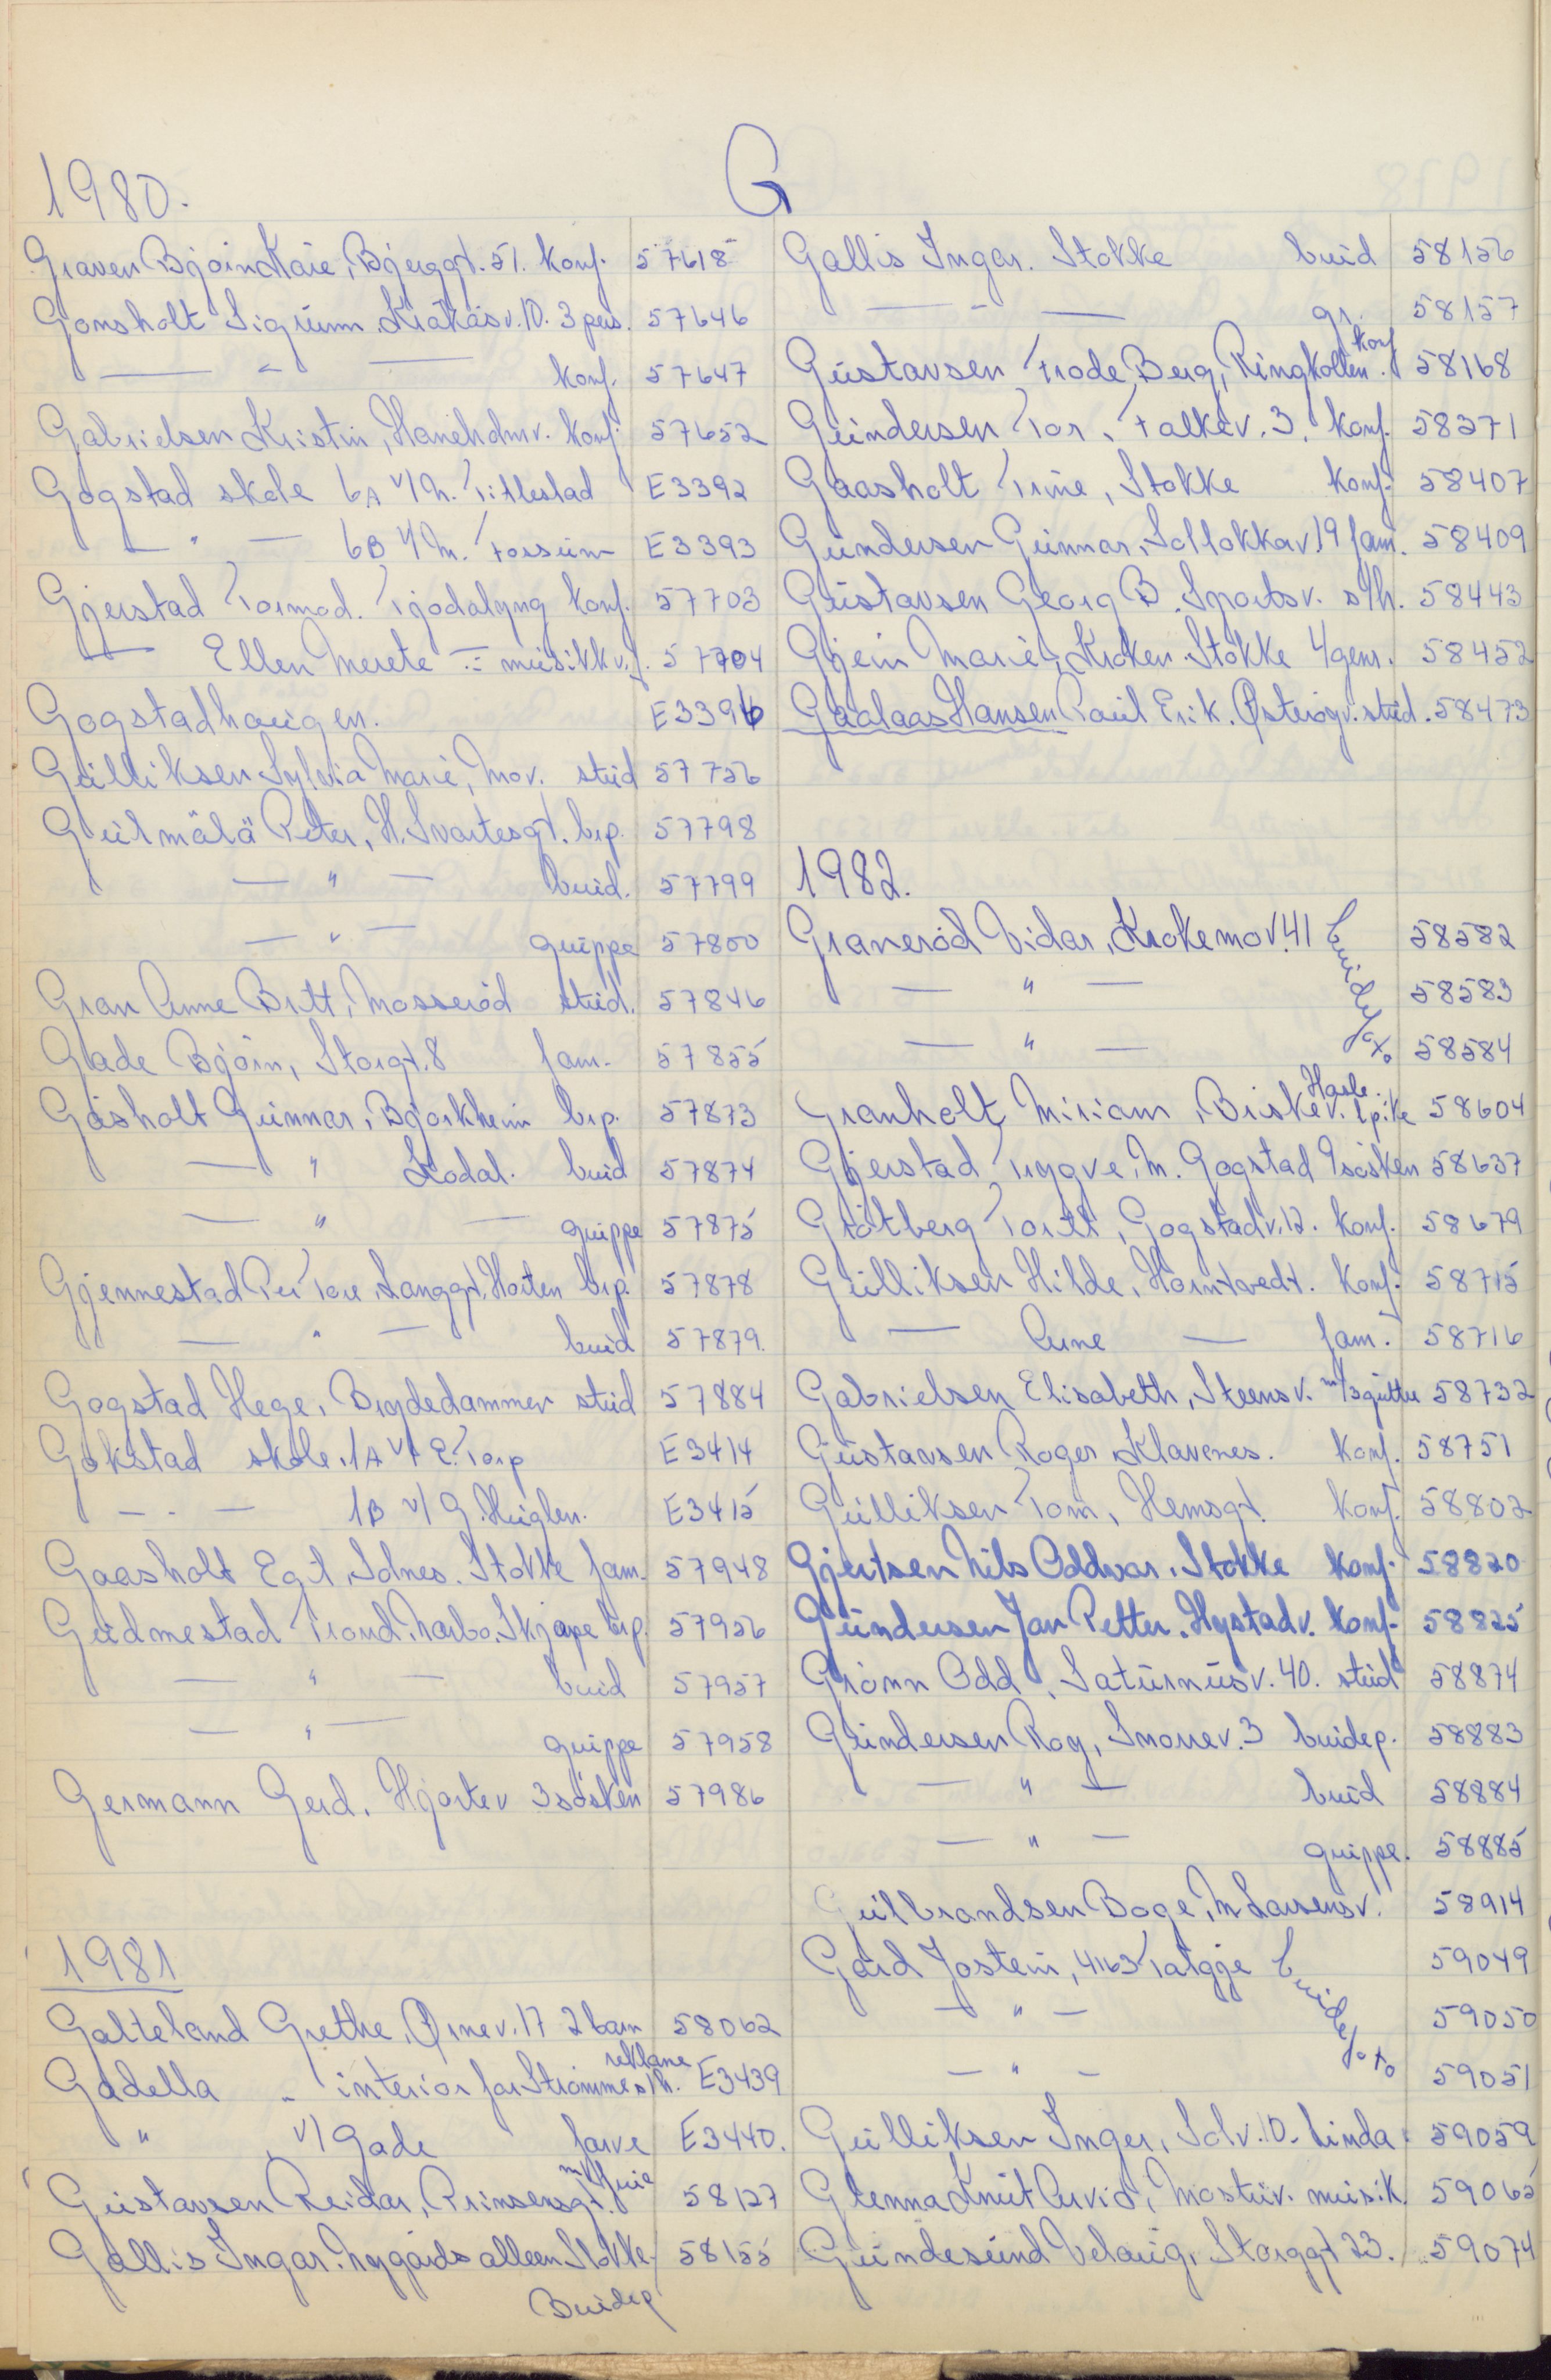 G
1980.
Graven Bjørn Kåre, Bjerggt. 51. konf. 57618
Gonsholt Sigrunn Kråkåsv. 10. 3 pers. 57646
— " — konf. 57647
Gabrielsen Kristin, Haneholmv. konf. 57652
Gogstad skole 6A v/ h. Tillestad E3392
— " — 6B v/ M. Fossum E3393
Gjerstad Tormod. Tjodalyng konf. 57703
— Ellen Merete — musikk 57704
Gogstadhaugen. E3396
Gulliksen Sylvia Marie, Mov. stud 57756
Gulmälä Peter, H. Svartesgt. brp. 57798
— " — brud. 57799
— " — gruppe 57800
Gran Anne Britt, Mosserød stud. 57846
Gade Bjørn, Storgt. 8 fam. 57855
Gåsholt Gunnar, Bjørkheim brp. 57873
— " Kodal. brud 57874
— " — gruppe 57875
Gjennestad Per Tore, Langgt, Horten brp. 57878
— " — brud 57879.
Gogstad Hege, Brydedammen stud 57884
Gokstad skole. 1A v/ E. Torp E3414
— " — 1B v/ G. Huglen. E3415
Gaasholt Egil, Solnes. Stokke fam. 57948
Gudmestad Trond, Narbo, Skjope brp. 57956
— " — brud 57957
— " — gruppe 57958
Germann Gerd. Hjortev 3 søsken 57986
1981
Galteland Grethe, Ørnev. 17 2 barn 58062
Gadella - interiør for Strømme s/h. reklame E3439
" v/ Gade farve E3440.
Gustavsen Reidar, Prinsensgt. m/ fruie 58127
Gallis Ingar. Nygårds alleen Stokke 58155
Brudep
Gallis Ingar. Stokke brud 58156
— " — gr. 58157
Gustavsen Frode Berg, Ringkollen. konf 58168
Gundersen Tor, Falkev. 3. konf. 58371
Gaasholt Trine, Stokke konf. 58407
Gundersen Gunnar, Sollokkav. 19 fam. 58409
Gustavsen Georg B. Sportsv. s/h. 58443
Gjein Marie, Kroken. Stokke 4 gener. 58452
Gaalaas Hansen Paul Erik. Østerøyv. stud. 58473
1982.
Granerød Vidar, Krokemov. 41 brudefoto 58582
— " — 58583
— " — 58584
Granholt Miriam, Briskev. Hasle 1 pike 58604
Gjerstad Trygve, M. Gogstad 9 søsken 58637
Grøtberg Torill, Gogstadv. 12. konf. 58679
Gulliksen Hilde, Horntvedt. konf. 58715
— Arne — fam. 58716
Gabrielsen Elisabeth, Steensv. m/ 3 gutter 58732
Gustavsen Roger Klavenes. konf. 58751
Gulliksen Tom, Hemsgt. konf. 58802
Gjertsen Nils Oddvar, Stokke konf. 58820
Gundersen Jan Petter. Hystadv. konf. 58825
Grønn Odd, Saturnusv. 40. stud 58874
Gundersen Roy, Snorrev. 3 brudep. 58883
— " — brud 58884
— " — gruppe. 58885
Gulbrandsen Boge, M. Larsensv. 58914
Gard Jostein, 4163 Talgje brudefoto 59049
— " — 59050
— " — 59051
Gulliksen Inger, Solv. 10. Linda 59059
Glenna Knut Arvid, Mostuv. musik. 59065
Gundesund Velaug, Storggt 23. 59074